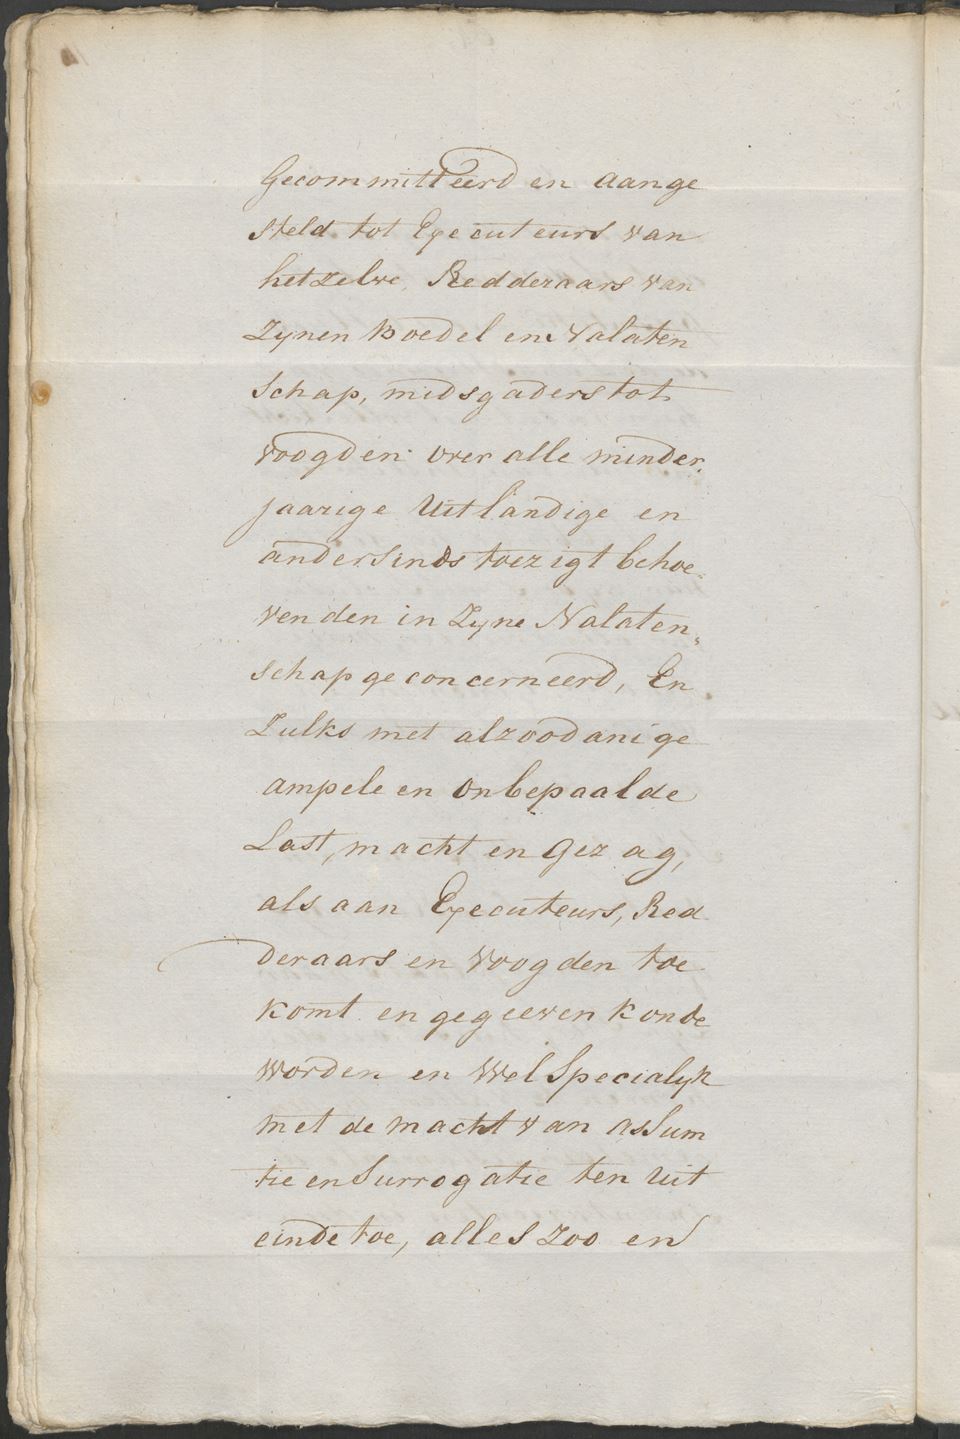 Gecommitteerd en aange
steld tot Executeurs van
hetzelve, Redderaars van
Zynen Boedel en Nalaten
Schap, midsgaders tot
voogden over alle minder.
jaarige Uitlandige en
andersinds toezigt behoe.
venden in Zyne Nalaten„
schap geconcerneerd, En
Zulks met alzoodanige
ampele en onbepaalde
Last, macht en gezag,
als aan Executeurs, Red
deraars en voogden toe
komt en gegeeven konde
worden en Wel Specialyk
met de macht van assum
tie en Surrogatie ten Uit
einde toe, alles zoo en